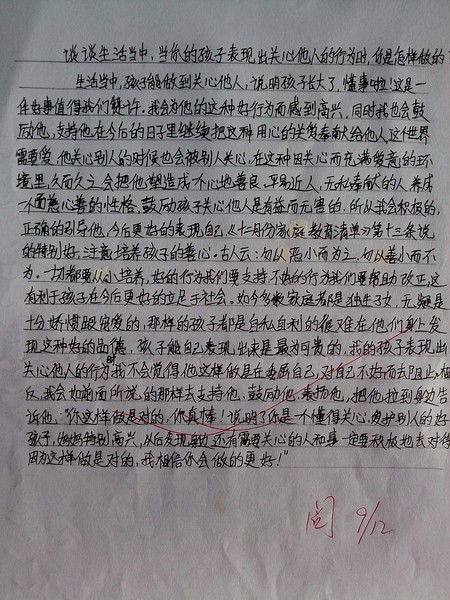 谈谈生活当中,当你的孩子表现出关心他人的行为时,你是怎样做的?
生活当中,孩子能做到关心他人,说明孩子长大了,懂事啦!这是一
件好事值得我们赞许。我会为他的这种好行为而感到高兴,同时我也会鼓
励他,支持他在今后的日子里继续把这种用心的关爱奉献给他人这个世界
需要爱,他关心别人的时候也会被别人关心,在这种因关心而充满爱意的环
境里,久而久之会把他塑造成一个心地善良、平易近人,无私奉献的人养成
一个面慈心善的性格,鼓励孩子关心他人是有益而无害的.所以我会积极的,
正确的引导他,今后更好的表现自己《十二月份家庭教育清单》第十三条说
的特别好,注意培养孩子的善心。古人云:勿以恶小而为之,勿以善小而不
为。一切都要从小培养,好的行为我们要支持不好的行为我们要帮助改正,这
有利于孩子在今后更好的立足于社会。如今多数家庭都是独生子女,无疑是
十分娇惯跟宠爱的,那样的孩子都是自私自利的很难在他们身上发
现这种好的品德,孩子能自己表现出来是最为可贵的,我的孩子表现出
关心他人的行为时我不会觉得他这样做是在委屈自己,对自己不好而去阻止,相
反,我会如前面所说的那样去支持他、鼓励他、表扬他,把他拉到身边告
诉他:“你这样做是对的,你真棒!说明了你是一个懂得关心,爱护别人的好
孩子,妈妈特别高兴,从后发现身边还有需要关心的人和事一定要积极地去对待
因为这样做是对的,我相信你会做的更好!”
阅 9/12